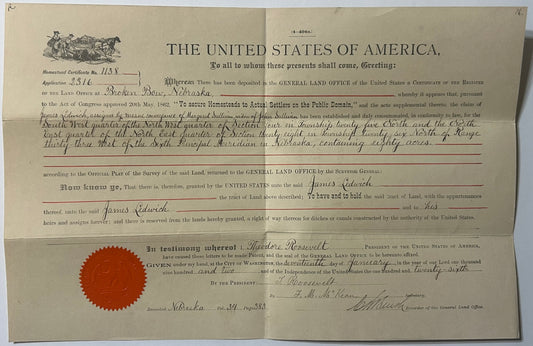 (4-404a.)
THE UNITED STATES OF AMERICA,
To all to whom these presents shall come, Greeting:
Homestead Certificate No. 1138
Application 2316
Whereas There has been deposited in the GENERAL LAND OFFICE of the United States a CERTIFICATE OF THE REGISTER
OF THE LAND OFFICE at Broken Bow, Nebraska, whereby it appears that, pursuant
to the Act of Congress approved 20th May, 1862, "To secure Homesteads to Actual Settlers on the Public Domain," and the acts supplemental thereto, the claim of
James Ledwich, assignee by mesne conveyances of Margaret Sullivan widow of John Sullivan has been established and duly consummated, in conformity to law, for the
South West quarter of the North West quarter of Section four in Township twenty five North and the North
East quarter of the North East quarter of Section twenty eight in Township twenty six North of Range
thirty three West of the Sixth Principal Meridian in Nebraska, containing eighty acres.
according to the OFFICIAL PLAT of the Survey of the said Land, returned to the GENERAL LAND OFFICE by the SURVEYOR GENERAL:
Now know ye, That there is, therefore, granted by the UNITED STATES unto the said James Ledwich
the tract of Land above described; To have and to hold the said tract of Land, with the appurtenances
thereof, unto the said James Ledwich and to his
heirs and assigns forever; and there is reserved from the lands hereby granted, a right of way thereon for ditches or canals constructed by the authority of the United States.
In testimony whereof I, Theodore Roosevelt PRESIDENT OF THE UNITED STATES OF AMERICA,
have caused these letters to be made Patent, and the seal of the GENERAL LAND OFFICE to be hereunto affixed.
GIVEN under my hand, at the CITY OF WASHINGTON, the seventeenth day of January, in the year of our Lord one thousand
nine hundred and two and of the Independence of the United States the one hundred and twenty-sixth
BY THE PRESIDENT: T. Roosevelt
By F. M. McKean, Secretary.
Recorder of the General Land Office.
Recorded Nebraska Vol. 34 Page 383